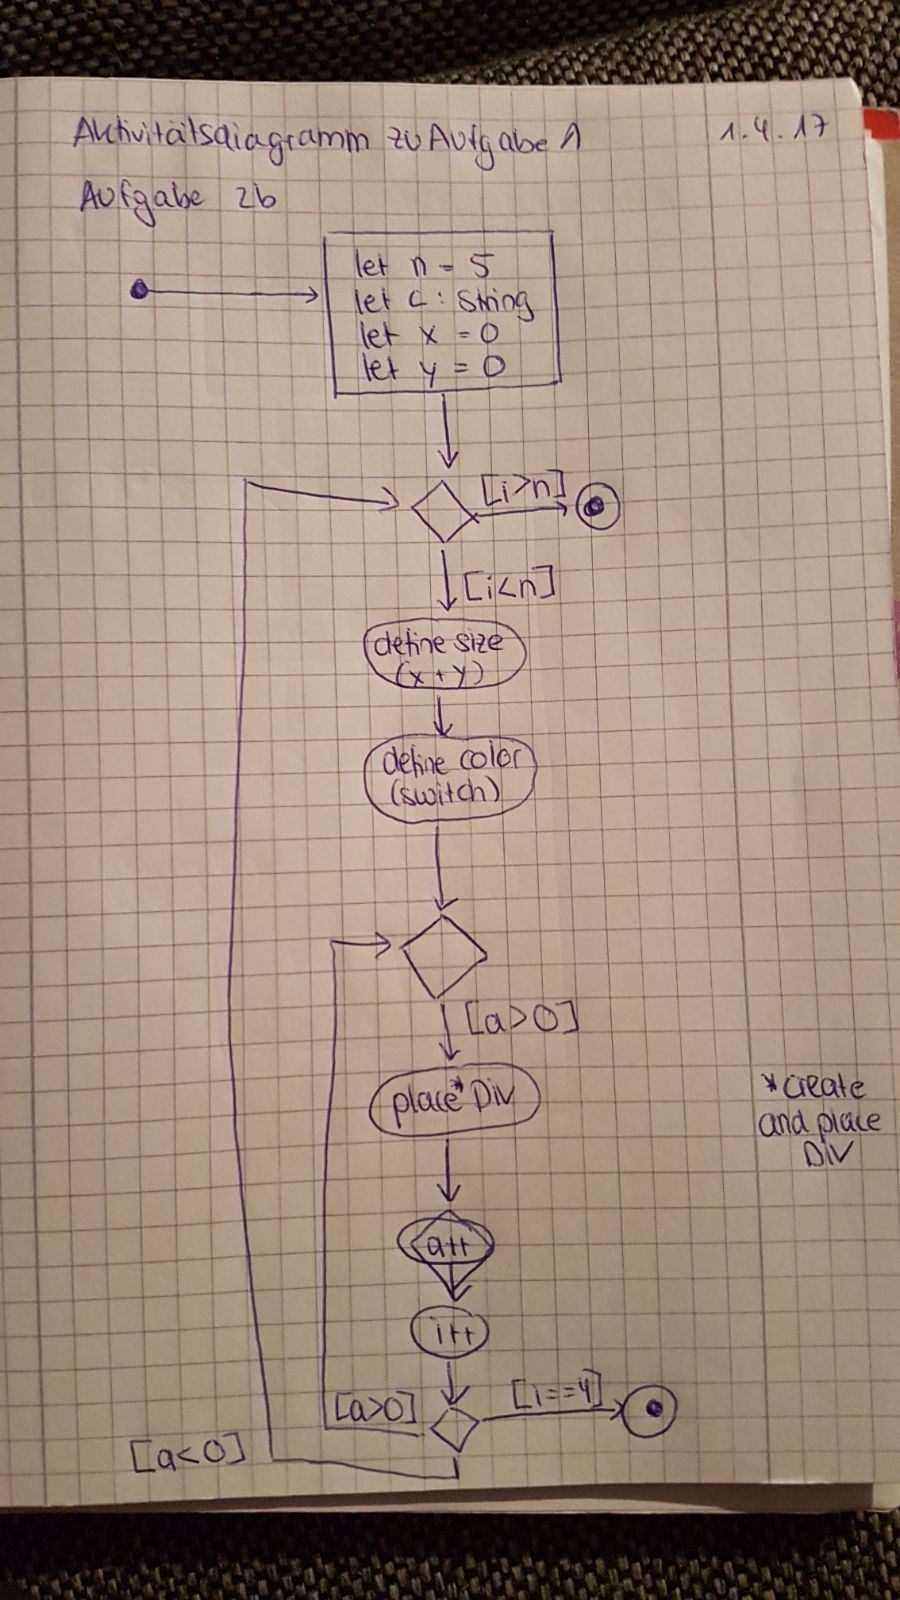 Aktivitätsdiagramm zu Aufgabe 1
1.4.17
Aufgabe 2b
let n = 5
let c : String
let x = 0
let y = 0
[i>n]
[i<n]
define size
(x + y)
define color
(switch)
[a>0]
place* Div
*create
and place
DiV
a++
i++
[a>0]
[i==4]
[a<0]